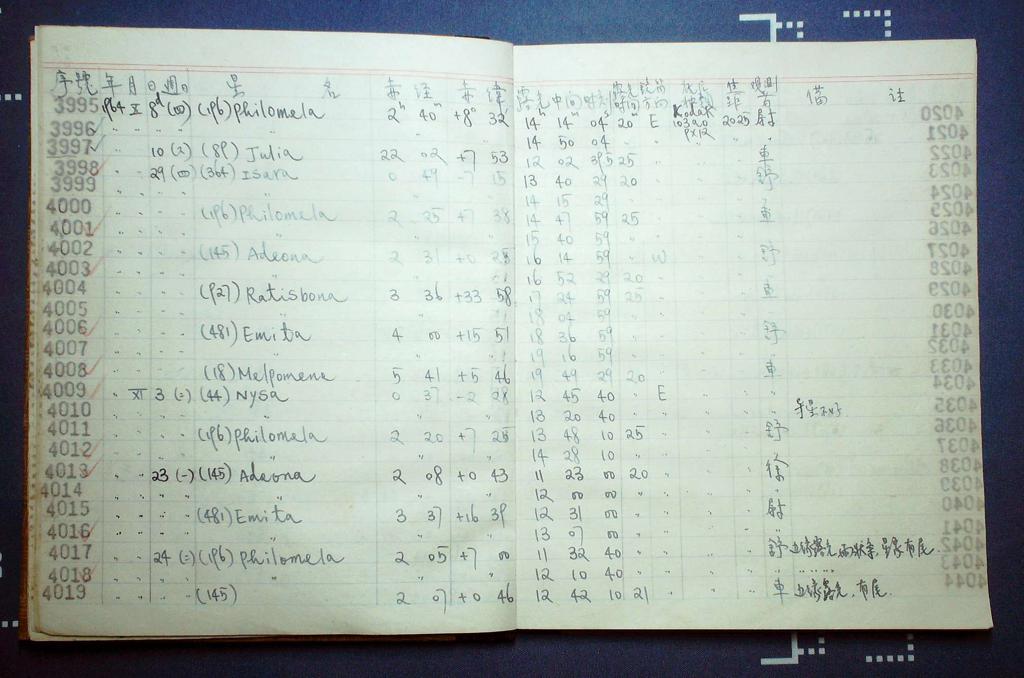 序號 年 月 日 週 星 名 赤 經 赤 緯 露光中間時刻 露光時間 鏡筒方向 底片種類 觀測者 備 註
3995 1964 X 8d (四) (196) Philomela 2h 40m +8° 32' 14h 14m 04s 20m E Kodak 103aO 9x12 2025 4020
3996 " " " " " 14 50 04 " 4021
3997 " " 10 (六) (89) Julia 22 02 +7 53 12 02 39.5 25 車 4022
3998 " " 29 (四) (364) Isara 0 49 -7 15 13 40 29 20 舒 4023
3999 " " " " " 14 15 29 4024
4000 " " (196) Philomela 2 25 +7 38 14 47 59 25 車 4025
4001 " " " " " 15 40 59 4026
4002 " " (145) Adeona 2 31 +0 28 16 14 59 " W 舒 4027
4003 " " " " " 16 52 29 20 4028
4004 " " (927) Ratisbona 3 36 +33 58 17 24 59 25 車 4029
4005 " " " " " 18 04 59 4030
4006 " " (481) Emita 4 00 +15 51 18 36 59 舒 4031
4007 " " " " " 19 16 59 4032
4008 " " (18) Melpomene 5 41 +5 46 19 49 29 20 車 4033
4009 " XI 3 (二) (44) Nysa 0 37 -2 28 12 45 40 " E 4034
4010 " " " " " 13 20 40 4035
4011 " " (196) Philomela 2 20 +7 25 13 48 10 25 舒 4036
4012 " " " " " 14 28 10 4037
4013 " " 23 (一) (145) Adeona 2 08 +0 43 11 23 00 20 徐 4038
4014 " " " " " 12 00 00 4039
4015 " " (481) Emita 3 37 +16 39 12 31 00 4040
4016 " " " " " 13 07 00 4041
4017 " " 24 (二) (196) Philomela 2 05 +7 00 11 32 40 舒 邊緣露光 星象有尾 4042
4018 " " " " " 12 10 40 4043
4019 " " (145) 2 07 +0 46 12 42 10 21 車 邊緣露光，有尾. 4044